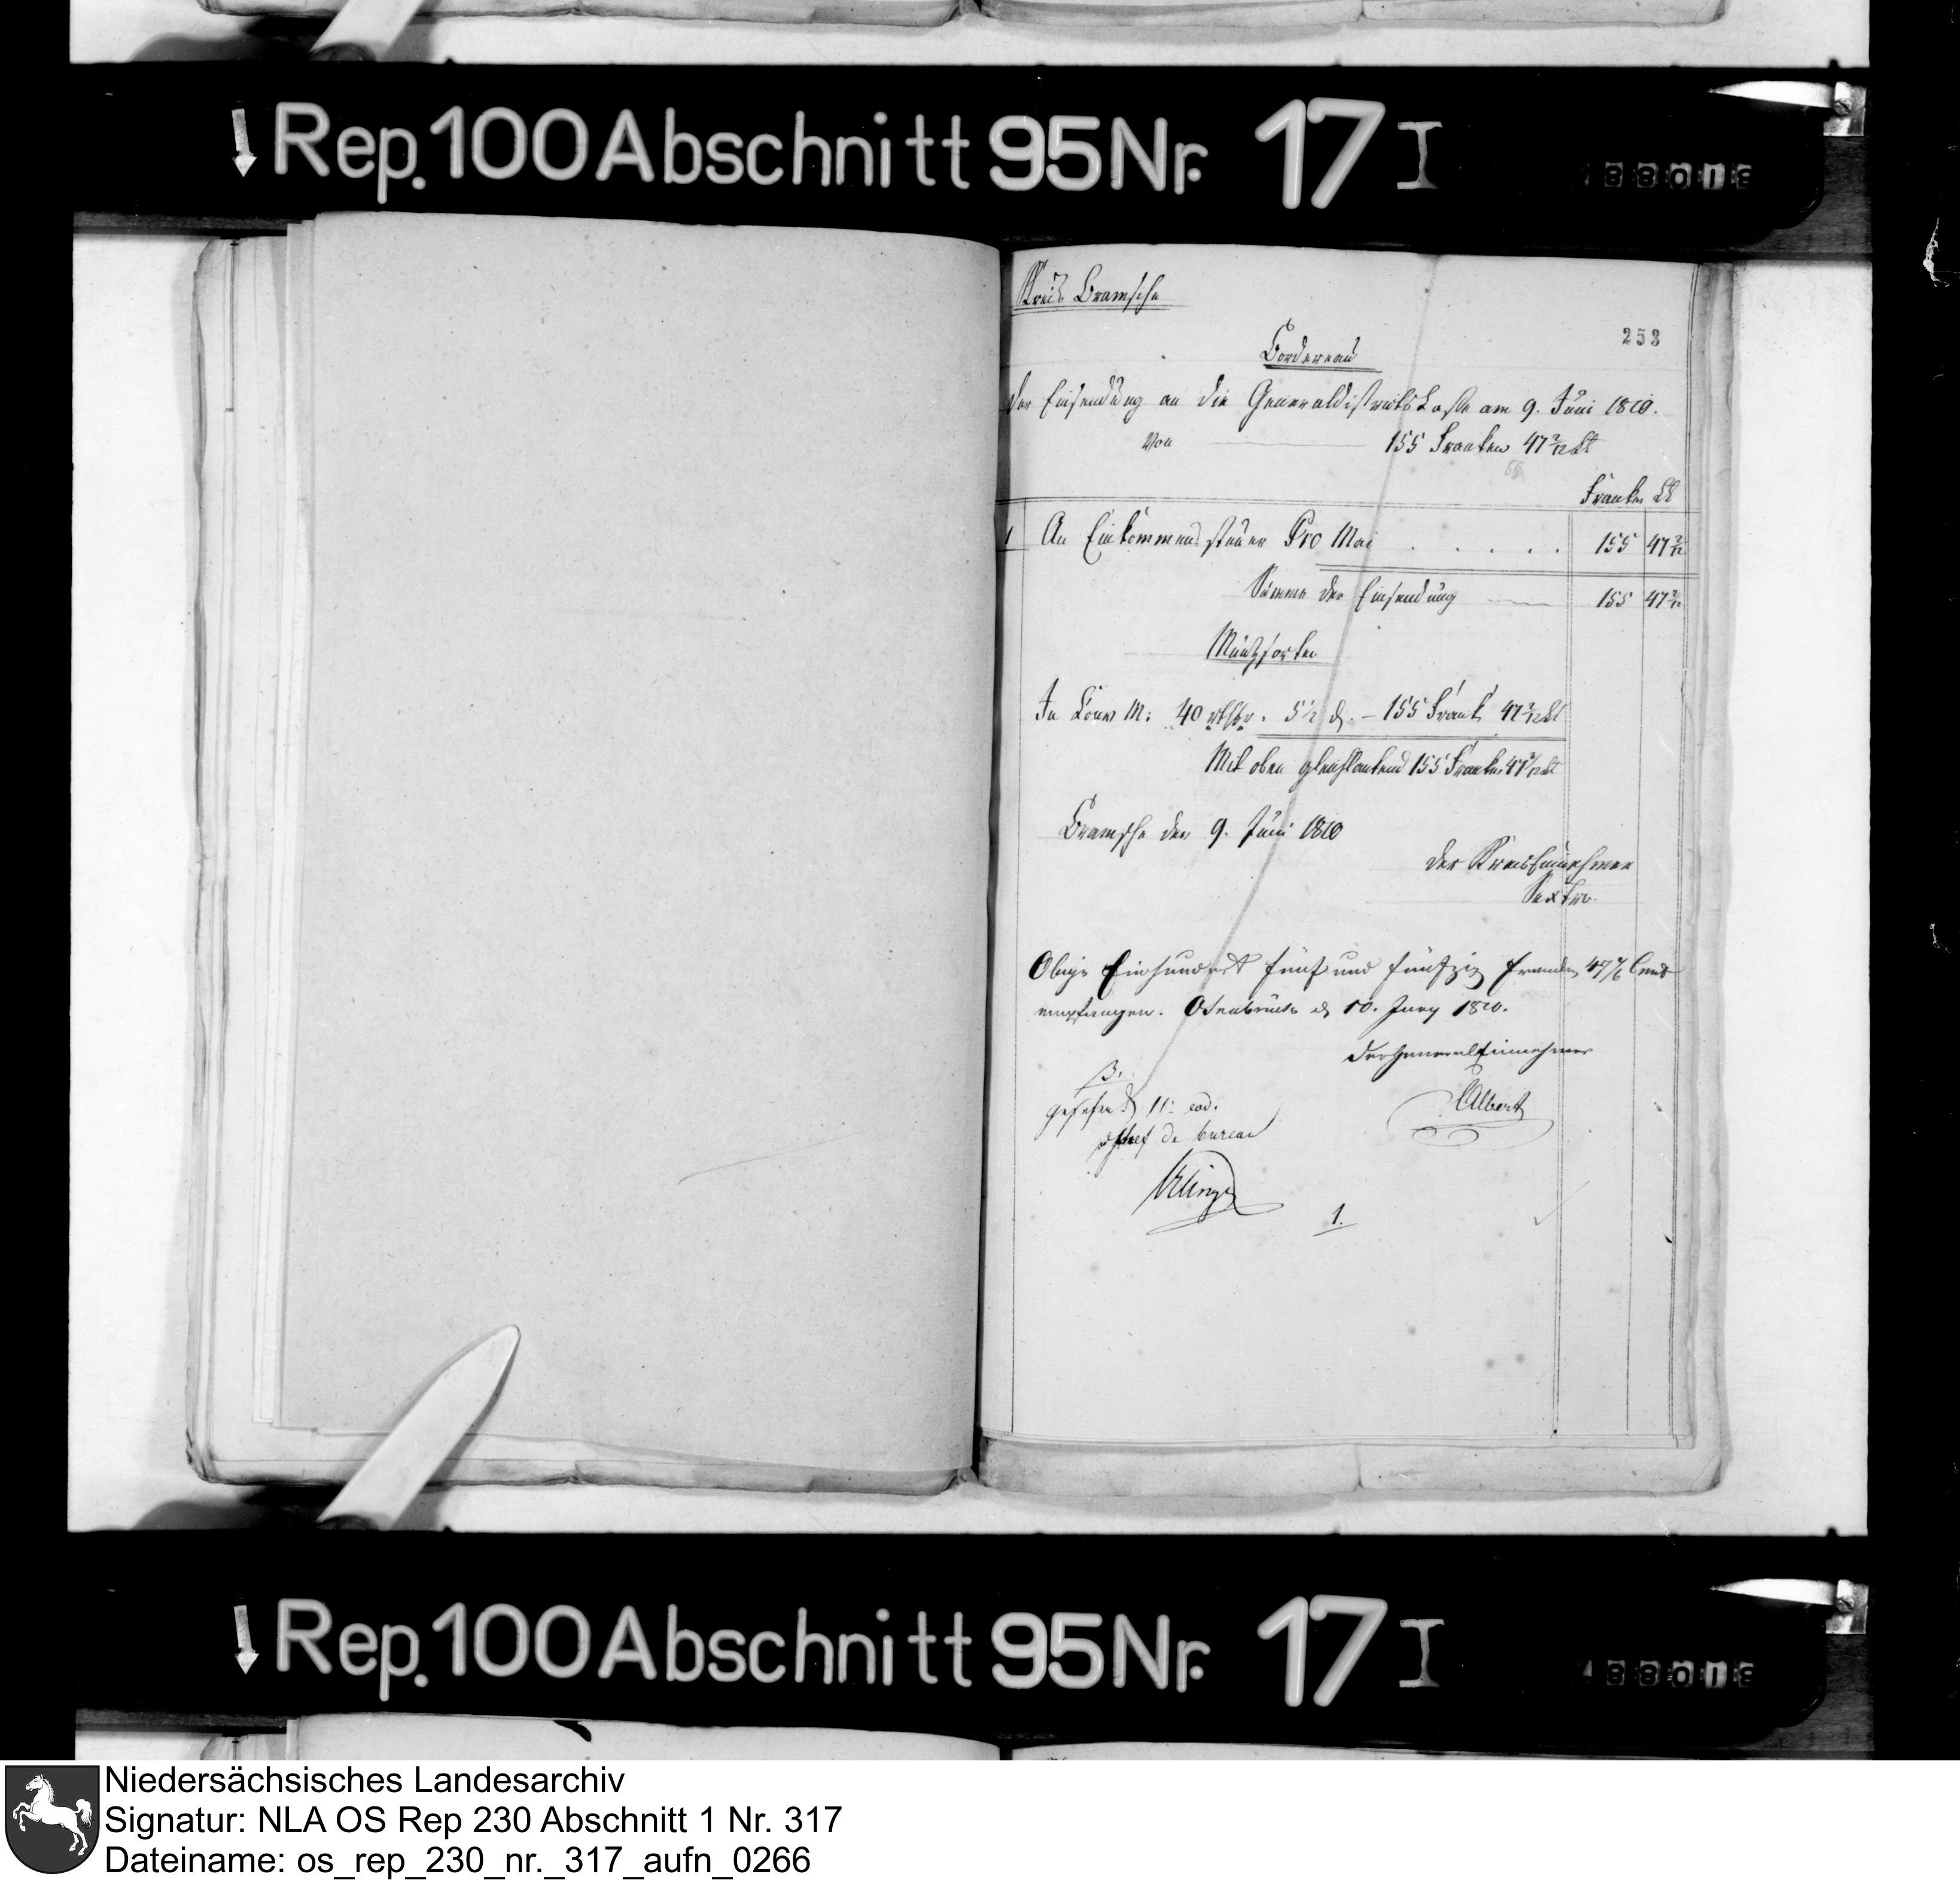 Rep. 100 Abschnitt 95 Nr. 17 I
Kreis Bramsche
253
Bordereau
der Einsendung an die Generaldistricts Casse am 9. Juni 1810.
Von 155 Franken 47 2/12 Ct
Franken Ct
1 An Einkommenssteuer Pro Mai . . . . . 155 47 2/12
Summe der Einsendung 155 47 2/12
Müntzsorten
In Conv M: 40 rthlr. 5 1/2 d. – 155 Frank 47 2/12 Ct
Mit oben gleichlautend 155 Franken 47 2/12 Ct
Bramsche den 9. Juni 1810
Der Kreiseinnehmer
Sextro.
Obige Einhundert fünf und fünfzig Franken 47 1/6 Cent
empfangen. Osnabrück d 10. Juny 1810.
Der General Einnehmer
Albert
gesehen d 11. eod.
chef de bureau
1.
Rep. 100 Abschnitt 95 Nr. 17 I
Niedersächsisches Landesarchiv
Signatur: NLA OS Rep 230 Abschnitt 1 Nr. 317
Dateiname: os_rep_230_nr._317_aufn_0266